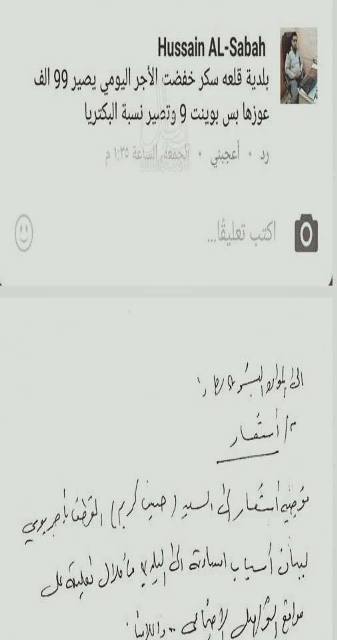 Hussain AL-Sabah
بلدية قلعه سكر خفضت الأجر اليومي يصير 99 الف
عوزها بس بوينت 9 وتصير نسبة البكتريا
رد · أعجبني · الجمعة، الساعة ١:٣٥ م
اكتب تعليقًا...
الى / الموارد البشرية
م / أستفسار
توجيه أستفسار الى السيد (حسين كريم) الموظف بأجر يومي
لبيان أسباب اساءته الى البلدية من خلال تعليقه على
مواقع التواصل الاجتماعي ..